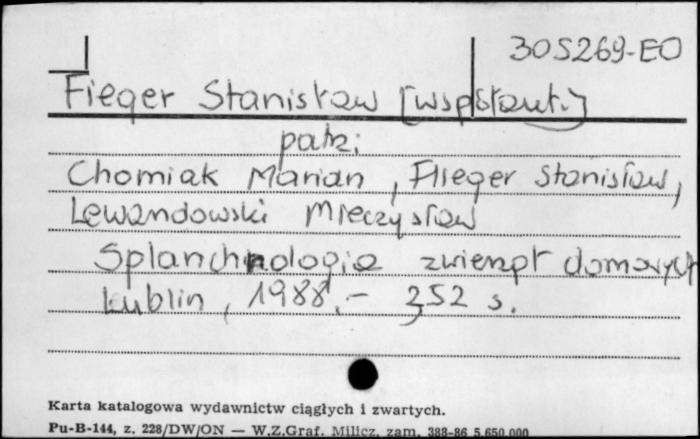 305269-EO
Fieger Stanisław [współaut.]
patrz:
Chomiak Marian, Flieger Stanisław,
Lewandowski Mieczysław
Splanchnologia zwierząt domowych
Lublin, 1988.- 352 s.
Karta katalogowa wydawnictw ciągłych i zwartych.
Pu-B-144, z. 228/DW/ON — W.Z.Graf. Milicz, zam. 388-86 5.650.000